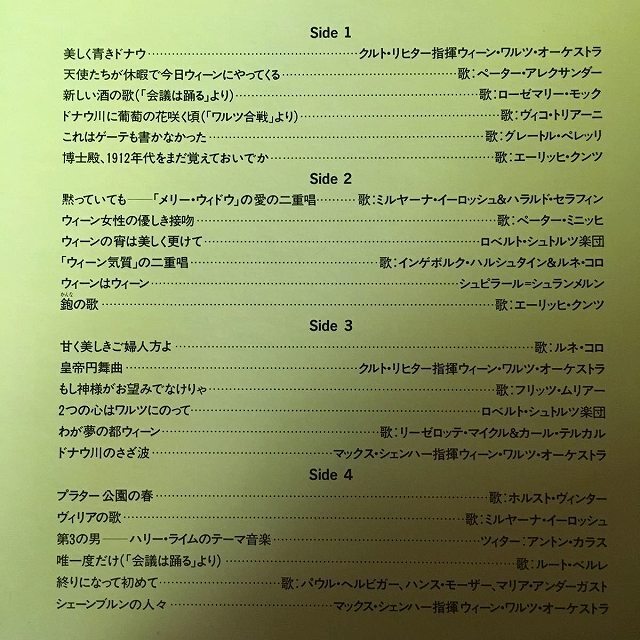 Side 1
美しく青きドナウ……クルト・リヒター指揮ウィーン・ワルツ・オーケストラ
天使たちが休暇で今日ウィーンにやってくる……歌：ペーター・アレクサンダー
新しい酒の歌(｢会議は踊る｣より)……歌：ローゼマリー・モック
ドナウ川に葡萄の花咲く頃(｢ワルツ合戦｣より)……歌：ヴィコ・トリアーニ
これはゲーテも書かなかった……歌：グレートル・ペレッリ
博士殿、1912年代をまだ覚えておいでか……歌：エーリッヒ・クンツ
Side 2
黙っていても──｢メリー・ウィドウ｣の愛の二重唱……歌：ミルヤーナ・イーロッシュ&ハラルド・セラフィン
ウィーン女性の優しき接吻……歌：ペーター・ミニッヒ
ウィーンの宵は美しく更けて……ロベルト・シュトルツ楽団
｢ウィーン気質｣の二重唱……歌：インゲボルク・ハルシュタイン&ルネ・コロ
ウィーンはウィーン……シュピラール=シュランメルン
かんな
鉋の歌……歌：エーリッヒ・クンツ
Side 3
甘く美しきご婦人方よ……歌：ルネ・コロ
皇帝円舞曲……クルト・リヒター指揮ウィーン・ワルツ・オーケストラ
もし神様がお望みでなけりゃ……歌：フリッツ・ムリアー
2つの心はワルツにのって……ロベルト・シュトルツ楽団
わが夢の都ウィーン……歌：リーゼロッテ・マイクル&カール・テルカル
ドナウ川のさざ波……マックス・シェンハー指揮ウィーン・ワルツ・オーケストラ
Side 4
プラター公園の春……歌：ホルスト・ヴィンター
ヴィリアの歌……歌：ミルヤーナ・イーロッシュ
第3の男──ハリー・ライムのテーマ音楽……ツィター：アントン・カラス
唯一度だけ(｢会議は踊る｣より)……歌：ルート・ベルレ
終りになって初めて……歌：パウル・ヘルビガー、ハンス・モーザー、マリア・アンダーガスト
シェーンブルンの人々……マックス・シェンハー指揮ウィーン・ワルツ・オーケストラ